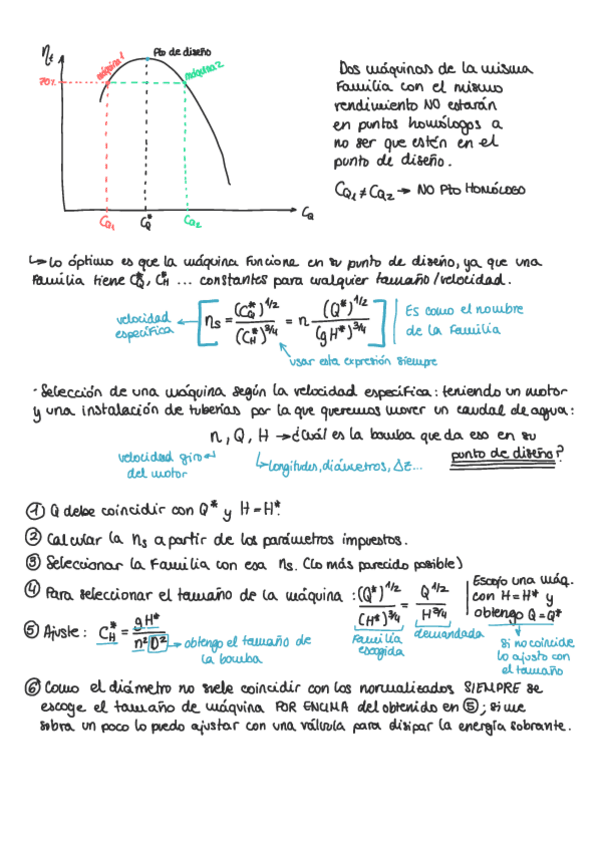 ηt
máquina 1
Pto de diseño
máquina 2
70%
CQ1
CQ*
CQ2
CQ
Dos máquinas de la misma
Familia con el mismo
rendimiento NO estarán
en puntos homólogos a
no ser que estén en el
punto de diseño.
CQ1 ≠ CQ2 → NO Pto HOMÓLOGO
↳ Lo óptimo es que la máquina funcione en su punto de diseño, ya que una
Familia tiene CQ*, CH* ... constantes para cualquier tamaño/velocidad.
velocidad
específica
ns = (CQ*)^1/2 / (CH*)^3/4 = n (Q*)^1/2 / (gH*)^3/4
Es como el nombre
de la Familia
usar esta expresión siempre
· Selección de una máquina según la velocidad específica: teniendo un motor
y una instalación de tuberías por la que queremos mover un caudal de agua:
n, Q, H → ¿Cuál es la bomba que da eso en su
punto de diseño?
velocidad giro
del motor
↳ longitudes, diámetros, Δz...
① Q debe coincidir con Q* y H = H*.
② Calcular la ns a partir de los parámetros impuestos.
③ Seleccionar la Familia con esa ns. (Lo más parecido posible)
④ Para seleccionar el tamaño de la máquina : (Q*)^1/2 / (H*)^3/4 = Q^1/2 / H^3/4
Familia
escogida
demandada
Escojo una máq.
con H=H* y
obtengo Q=Q*
Si no coincide
lo ajusto con
el tamaño
⑤ Ajuste : CH* = gH* / n² D² → obtengo el tamaño de
la bomba
⑥ Como el diámetro no suele coincidir con los normalizados SIEMPRE se
escoge el tamaño de máquina POR ENCIMA del obtenido en ⑤; si me
sobra un poco lo puedo ajustar con una válvula para disipar la energía sobrante.